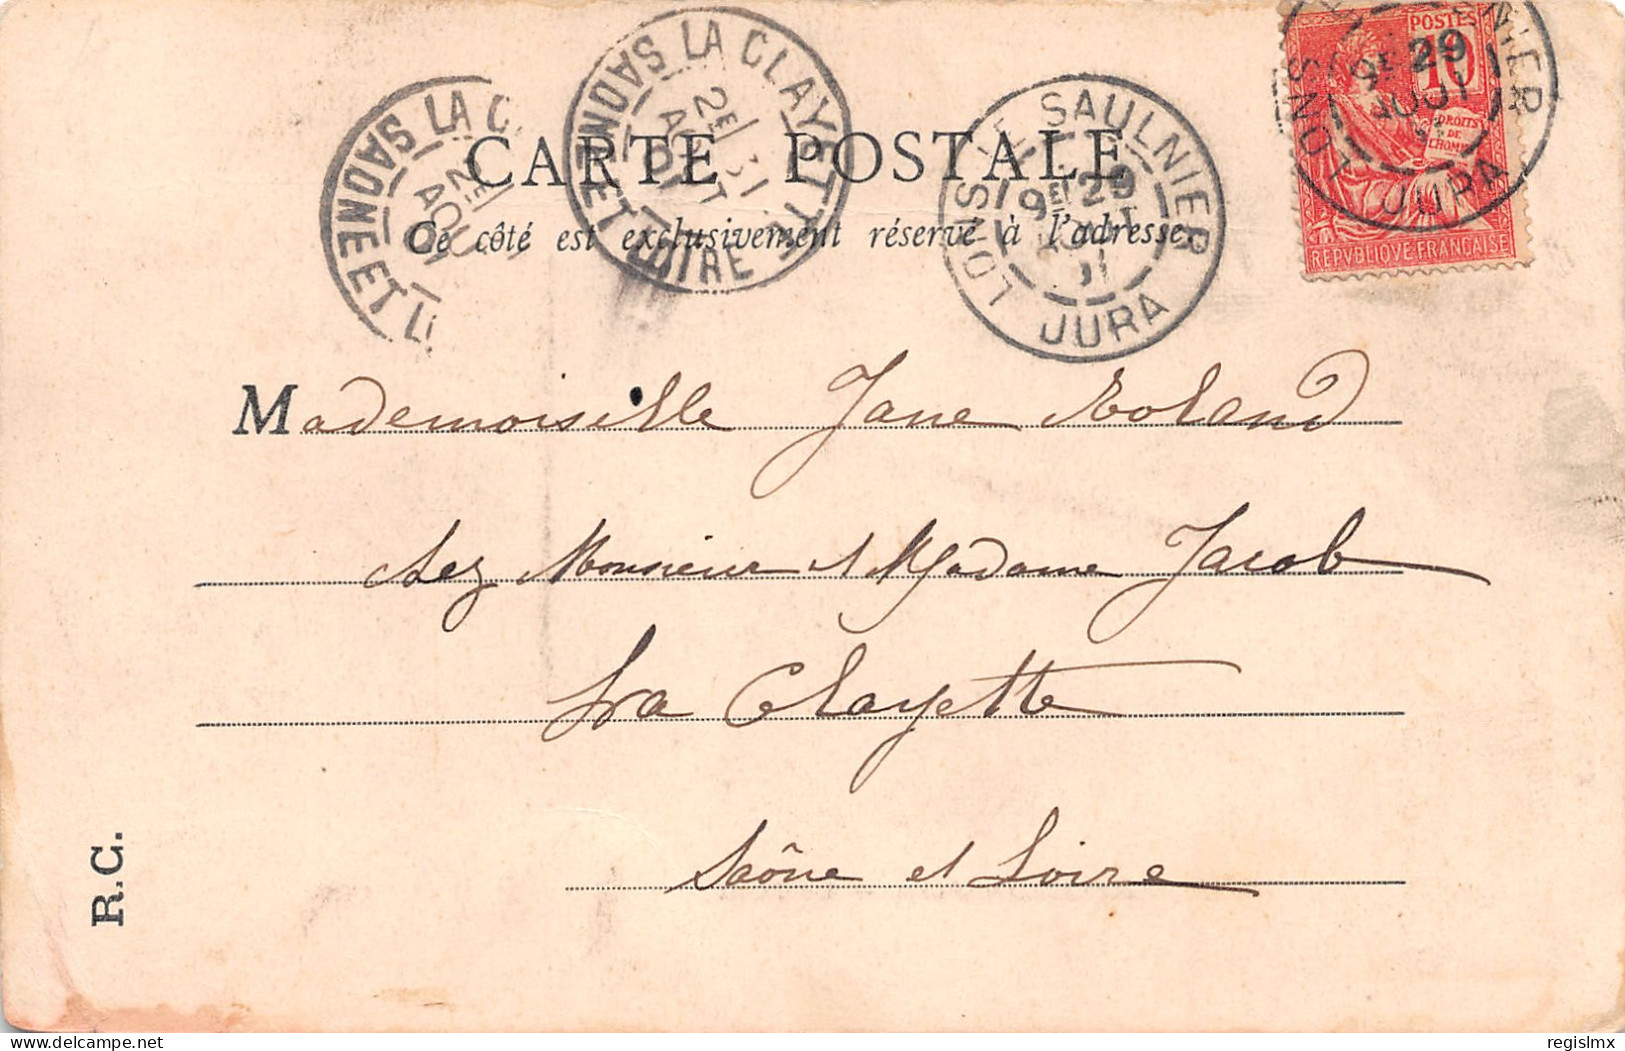 LA CLAYETTE
SAONE ET LOIRE
2E
31
AOUT
01
LA C
SAONE ET L
2E
AOU
01
LONS-LE-SAULNIER
9E 29
JURA
POSTES
10
DROITS
DE
L'HOMME
REPVBLIQVE FRANÇAISE
NIER
LONS
9E 29
AOUT
JURA
CARTE POSTALE
Ce côté est exclusivement réservé à l'adresse
Mademoiselle Jane Roland
chez Monsieur et Madame Jacob
La Clayette
Saône et Loire
R.C.
regislmx